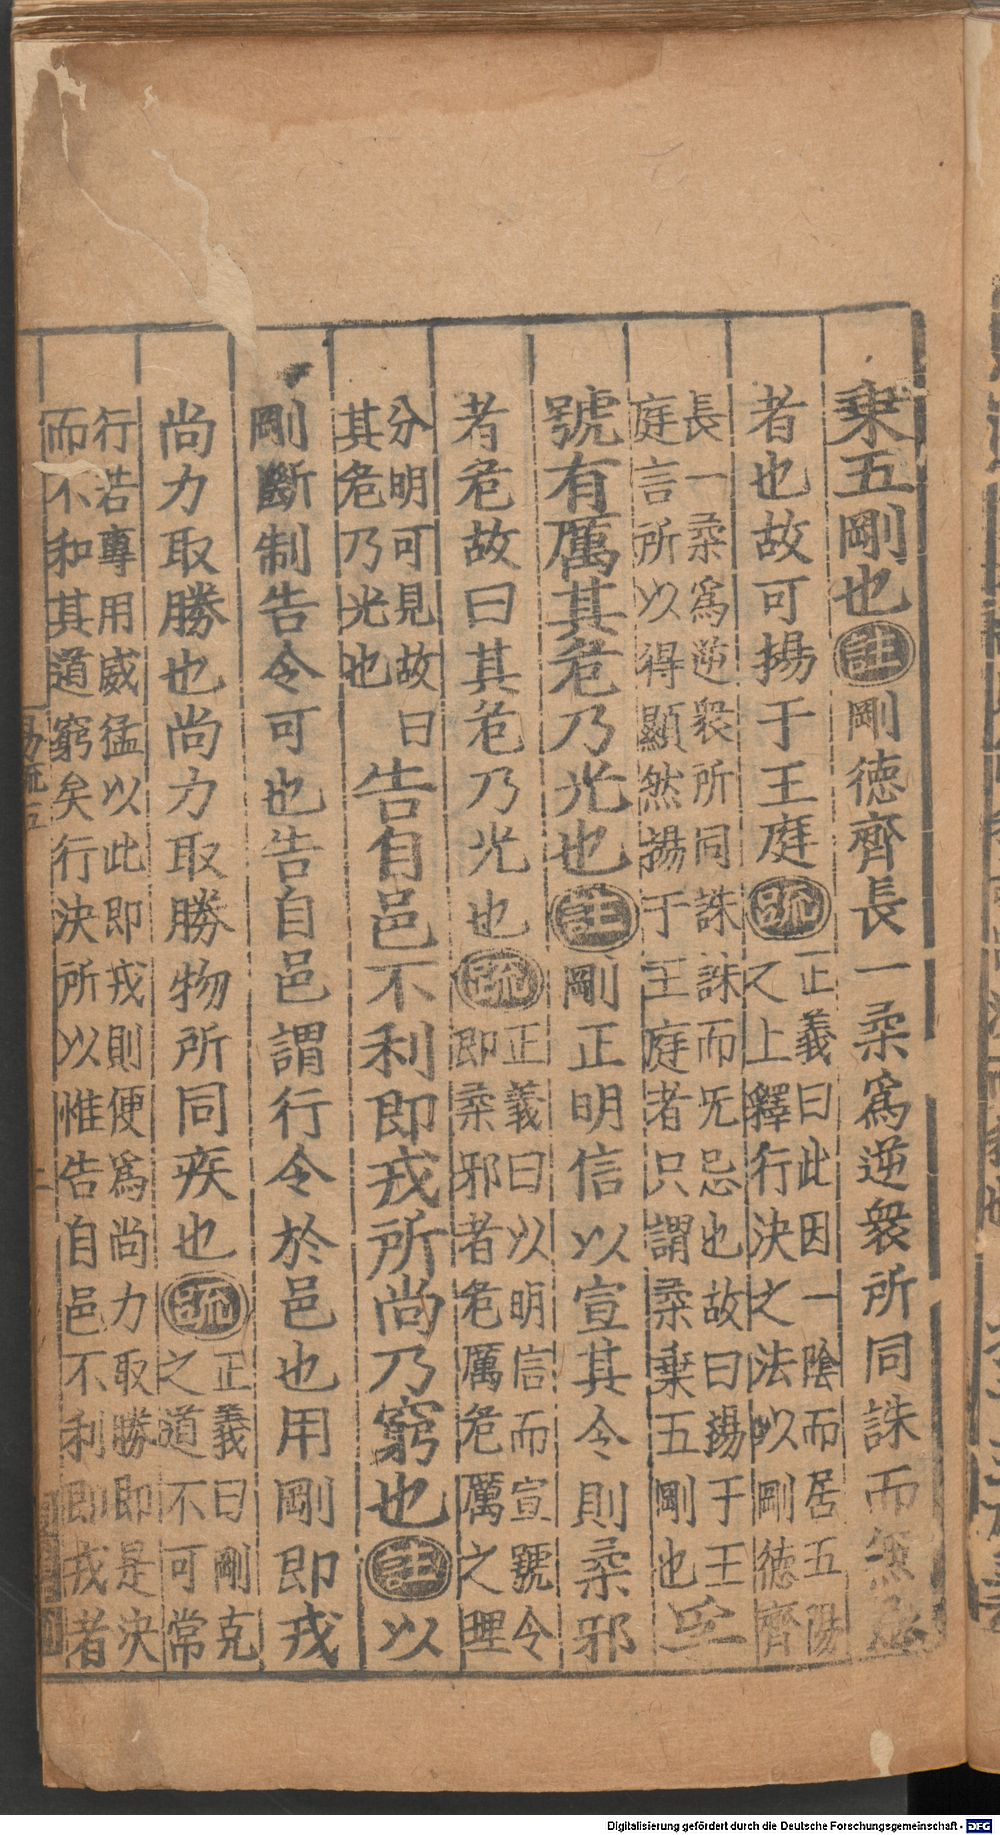 乗五剛也註剛徳齊長一柔爲逆衆所同誅而無
者也故可揚于王庭疏正義曰此因一陰而居五陽
之上釋行決之法以剛徳齊
長一柔爲逆衆所同誅誅而无忌也故曰揚于王
庭言所以得顯然揚于王庭者只謂柔乗五剛也孚
號有厲其危乃光也註剛正明信以宣其令則柔邪
者危故曰其危乃光也疏正義曰以明信而宣號令
即柔邪者危厲危厲之理
分明可見故曰
其危乃光也告自邑不利即戎所尚乃窮也註以
剛斷制告令可也告自邑謂行令於邑也用剛即戎
尚力取勝也尚力取勝物所同疾也疏正義曰剛克
之道不可常
行若專用威猛以此即戎則便爲尚力取勝即是決
而不和其道窮矣行決所以惟告自邑不利即戎者
易疏五
Digitalisierung gefördert durch die Deutsche Forschungsgemeinschaft - DFG